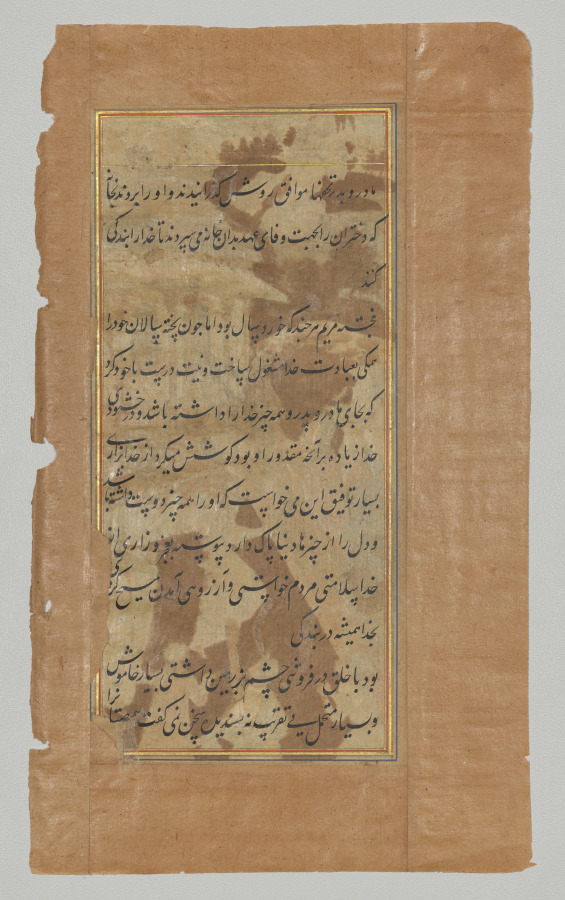 مادر و پدر تحفها موافق روش گذرانیدند و او را بردند بخانه
که دختران را بجهت وفای عهد بدان خانه می سپردند تا خدا را بندگی
کند
خجسته مریم هرچند که خورد سال بود اما چون پخته سالان خود را
همگی بعبادت خدا مشغول ساخت و نیت درست با خود کرد
که بجای مادر و پدر و همه چیز خدا را داشته باشد و در خشنودی
خدا زیاده بر آنچه مقدور او بود کوشش میکرد از خدا بزاری
بسیار توفیق این می خواست که او را همه چیز دوست داشته باشد
و دل را از چیزها دنیا پاک دارد پیوسته بعجز و زاری از
خدا سلامتی مردم خواستی و آرزوی آمدن مسیح کردی
بخدا همیشه در بندگی
بود با خلق در فروتنی چشم بر زمین داشتی بسیار خاموش
و بسیار متحمل بی تقریب نه بسندیدی سخن نمی گفت